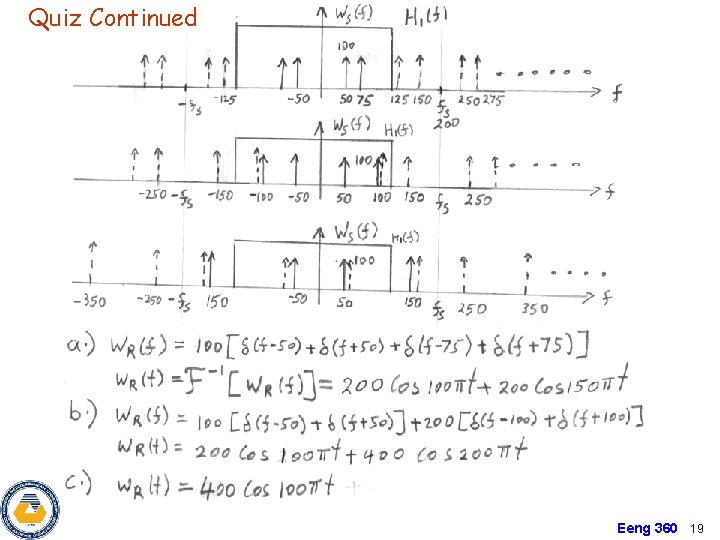 Quiz Continued
Ws(f) H1(f)
100
-fs -125 -50 50 75 125 150 fs 250 275 f
200
Ws(f) H1(f)
100
-250 -fs -150 -100 -50 50 100 150 fs 250 f
Ws(f) H1(f)
100
-350 -250 -fs 150 -50 50 150 fs 250 350 f
a.) WR(f) = 100[δ(f-50)+δ(f+50)+δ(f-75)+δ(f+75)]
WR(t) = F⁻¹[WR(f)] = 200 cos 100πt + 200 cos 150πt
b.) WR(f) = 100[δ(f-50)+δ(f+50)]+200[δ(f-100)+δ(f+100)]
WR(t) = 200 cos 100πt + 400 cos 200πt
c.) WR(t) = 400 cos 100πt
Eeng 360 19